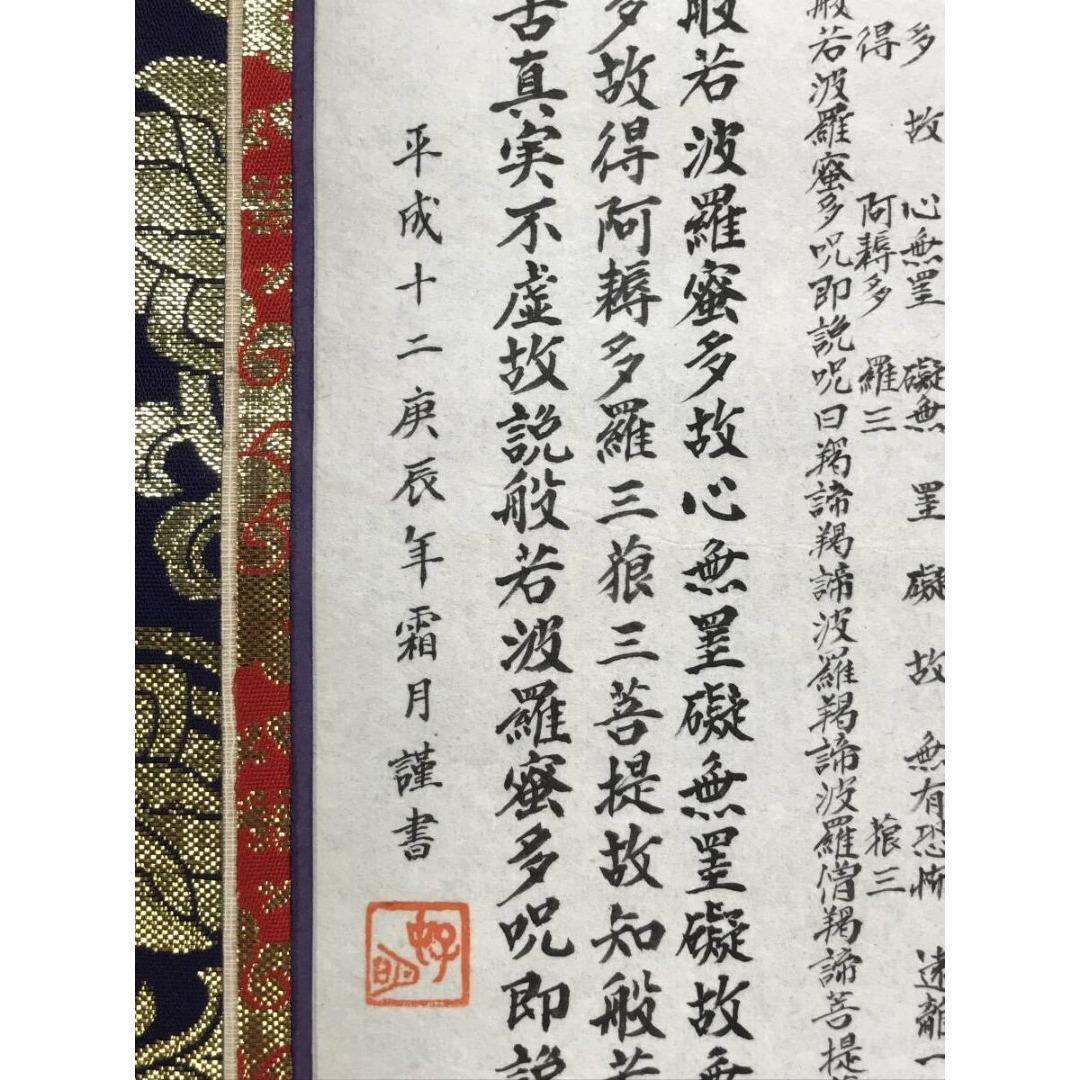 多故心無罣礙無罣礙故無有恐怖遠離一
得阿耨多羅三藐三
般若波羅蜜多呪即説呪曰羯諦羯諦波羅羯諦波羅僧羯諦菩提
般若波羅蜜多故心無罣礙無罣礙故無
多故得阿耨多羅三藐三菩提故知般若
苦真実不虚故説般若波羅蜜多呪即説
平成十二庚辰年霜月謹書